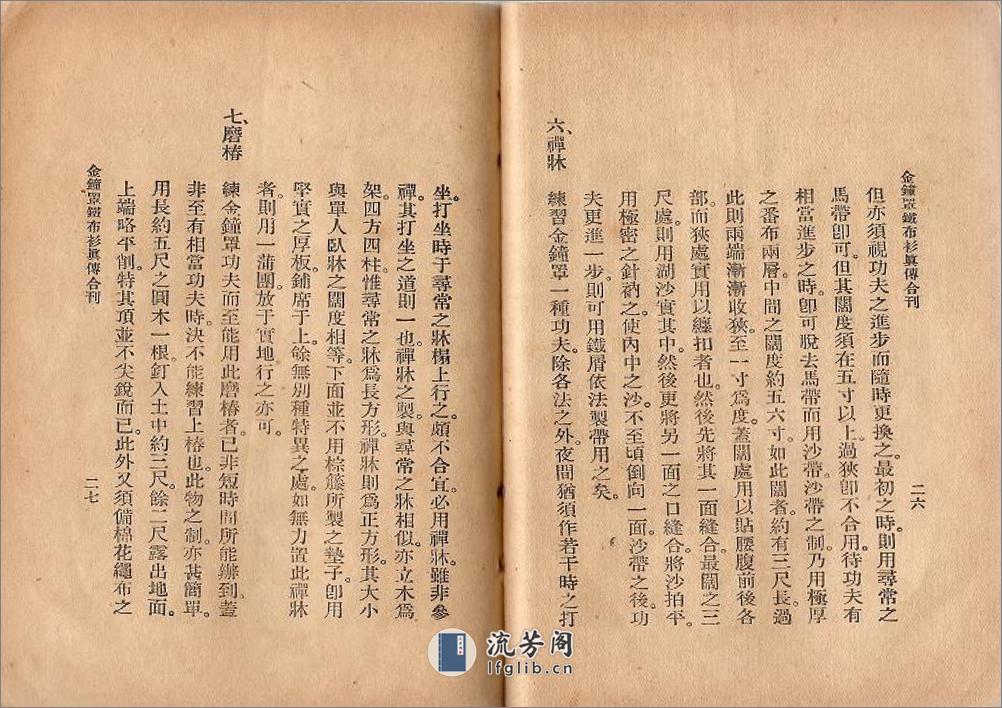 金鐘罩鐵布衫眞傳合刊
二六
但亦須視功夫之進步而隨時更換之。最初之時。則用尋常之
馬帶卽可。但其闊度須在五寸以上。過狹卽不合用。待功夫有
相當進步之時。卽可脫去馬帶而用沙帶。沙帶之制。乃用極厚
之番布兩層。中間之闊度約五六寸。如此闊者。約有三尺長。過
此則兩端漸漸收狹。至一寸爲度。蓋闊處用以貼腰腹前後各
部。而狹處實用以纏扣者也。然後先將其一面縫合。最闊之三
尺處。則用湖沙實其中。然後更將另一面之口縫合。將沙拍平。
用極密之針衲之。使內中之沙。不至頃倒向一面。沙帶之後。功
夫更進一步。則可用鐵屑依法製帶用之矣。
六、禪牀
練習金鐘罩一種功夫。除各法之外。夜間猶須作若干時之打
坐。打坐時于尋常之牀榻上行之。頗不合宜。必用禪牀。雖非參
禪。其打坐之道則一也。禪牀之製。與尋常之牀相似。亦立木爲
架。四方四柱。惟尋常之牀爲長方形。禪牀則爲正方形。其大小
與單人臥牀之闊度相等。下面並不用棕籐所製之墊子。卽用
堅實之厚板。鋪席于上。餘無別種特異之處。如無力置此禪牀
者。則用一蒲團放于實地行之亦可。
七、磨樁
練金鐘罩功夫而至能用此磨樁者。已非短時間所能辦到。蓋
非至有相當功夫時。決不能練習上樁也。此物之制。亦甚簡單。
用長約五尺之圓木一根。釘入土中約三尺。餘二尺露出地面。
上端略平削。特其頂並不尖銳而已。此外又須備棉花繩布之
金鐘罩鐵布衫眞傳合刊
二七
流芳阁
lfglib.cn